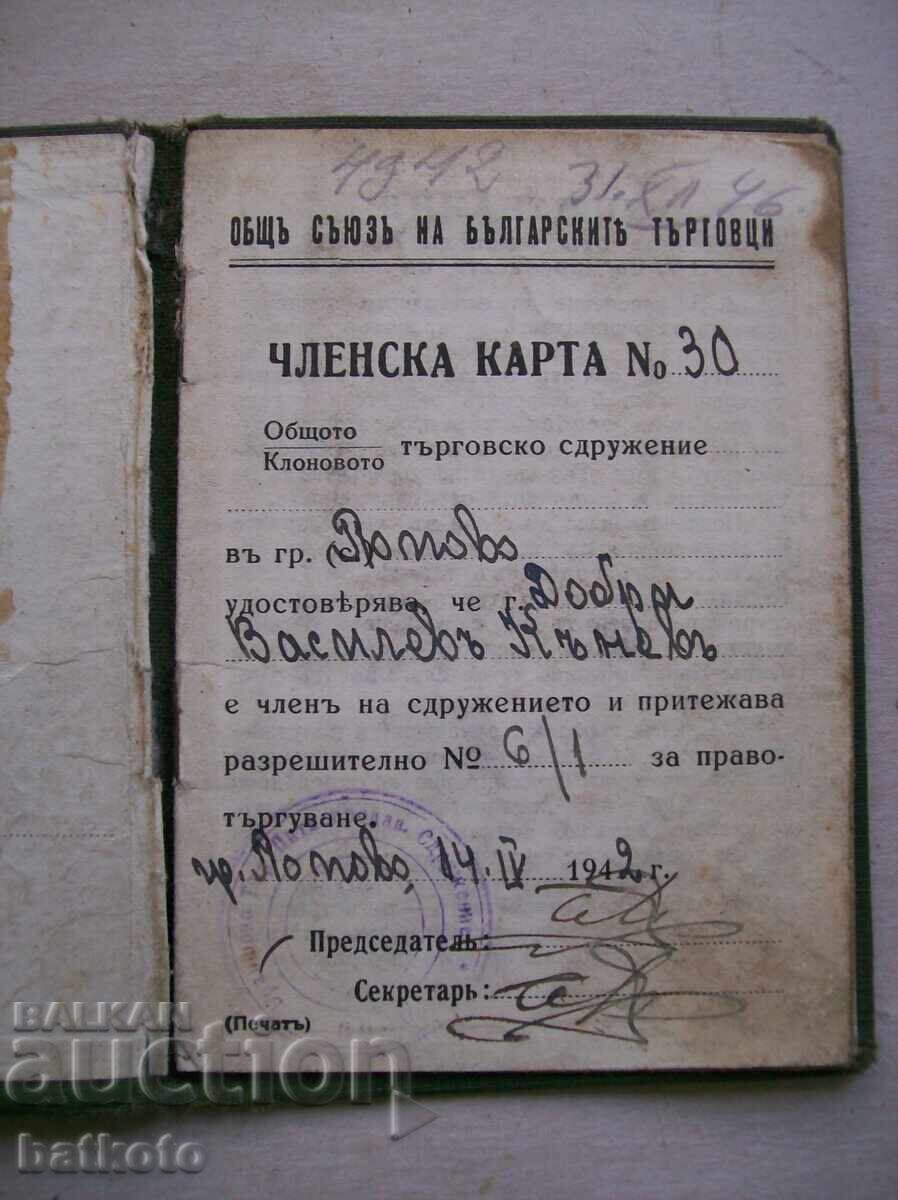 4942 31.XII 46.
ОБЩЪ СЪЮЗЪ НА БЪЛГАРСКИТѢ ТЪРГОВЦИ
ЧЛЕНСКА КАРТА № 30
Общото
Клоновото
търговско сдружение
въ гр. Попово
удостовѣрява, че г. Добри
Василевъ Кѫневъ
е членъ на сдружението и притежава
разрешително № 6/1 за право-
търгуване.
гр. Попово, 14. IV 1942 г.
Председатель:
Секретарь:
(Печатъ)
BALKAN
auction
batkoto